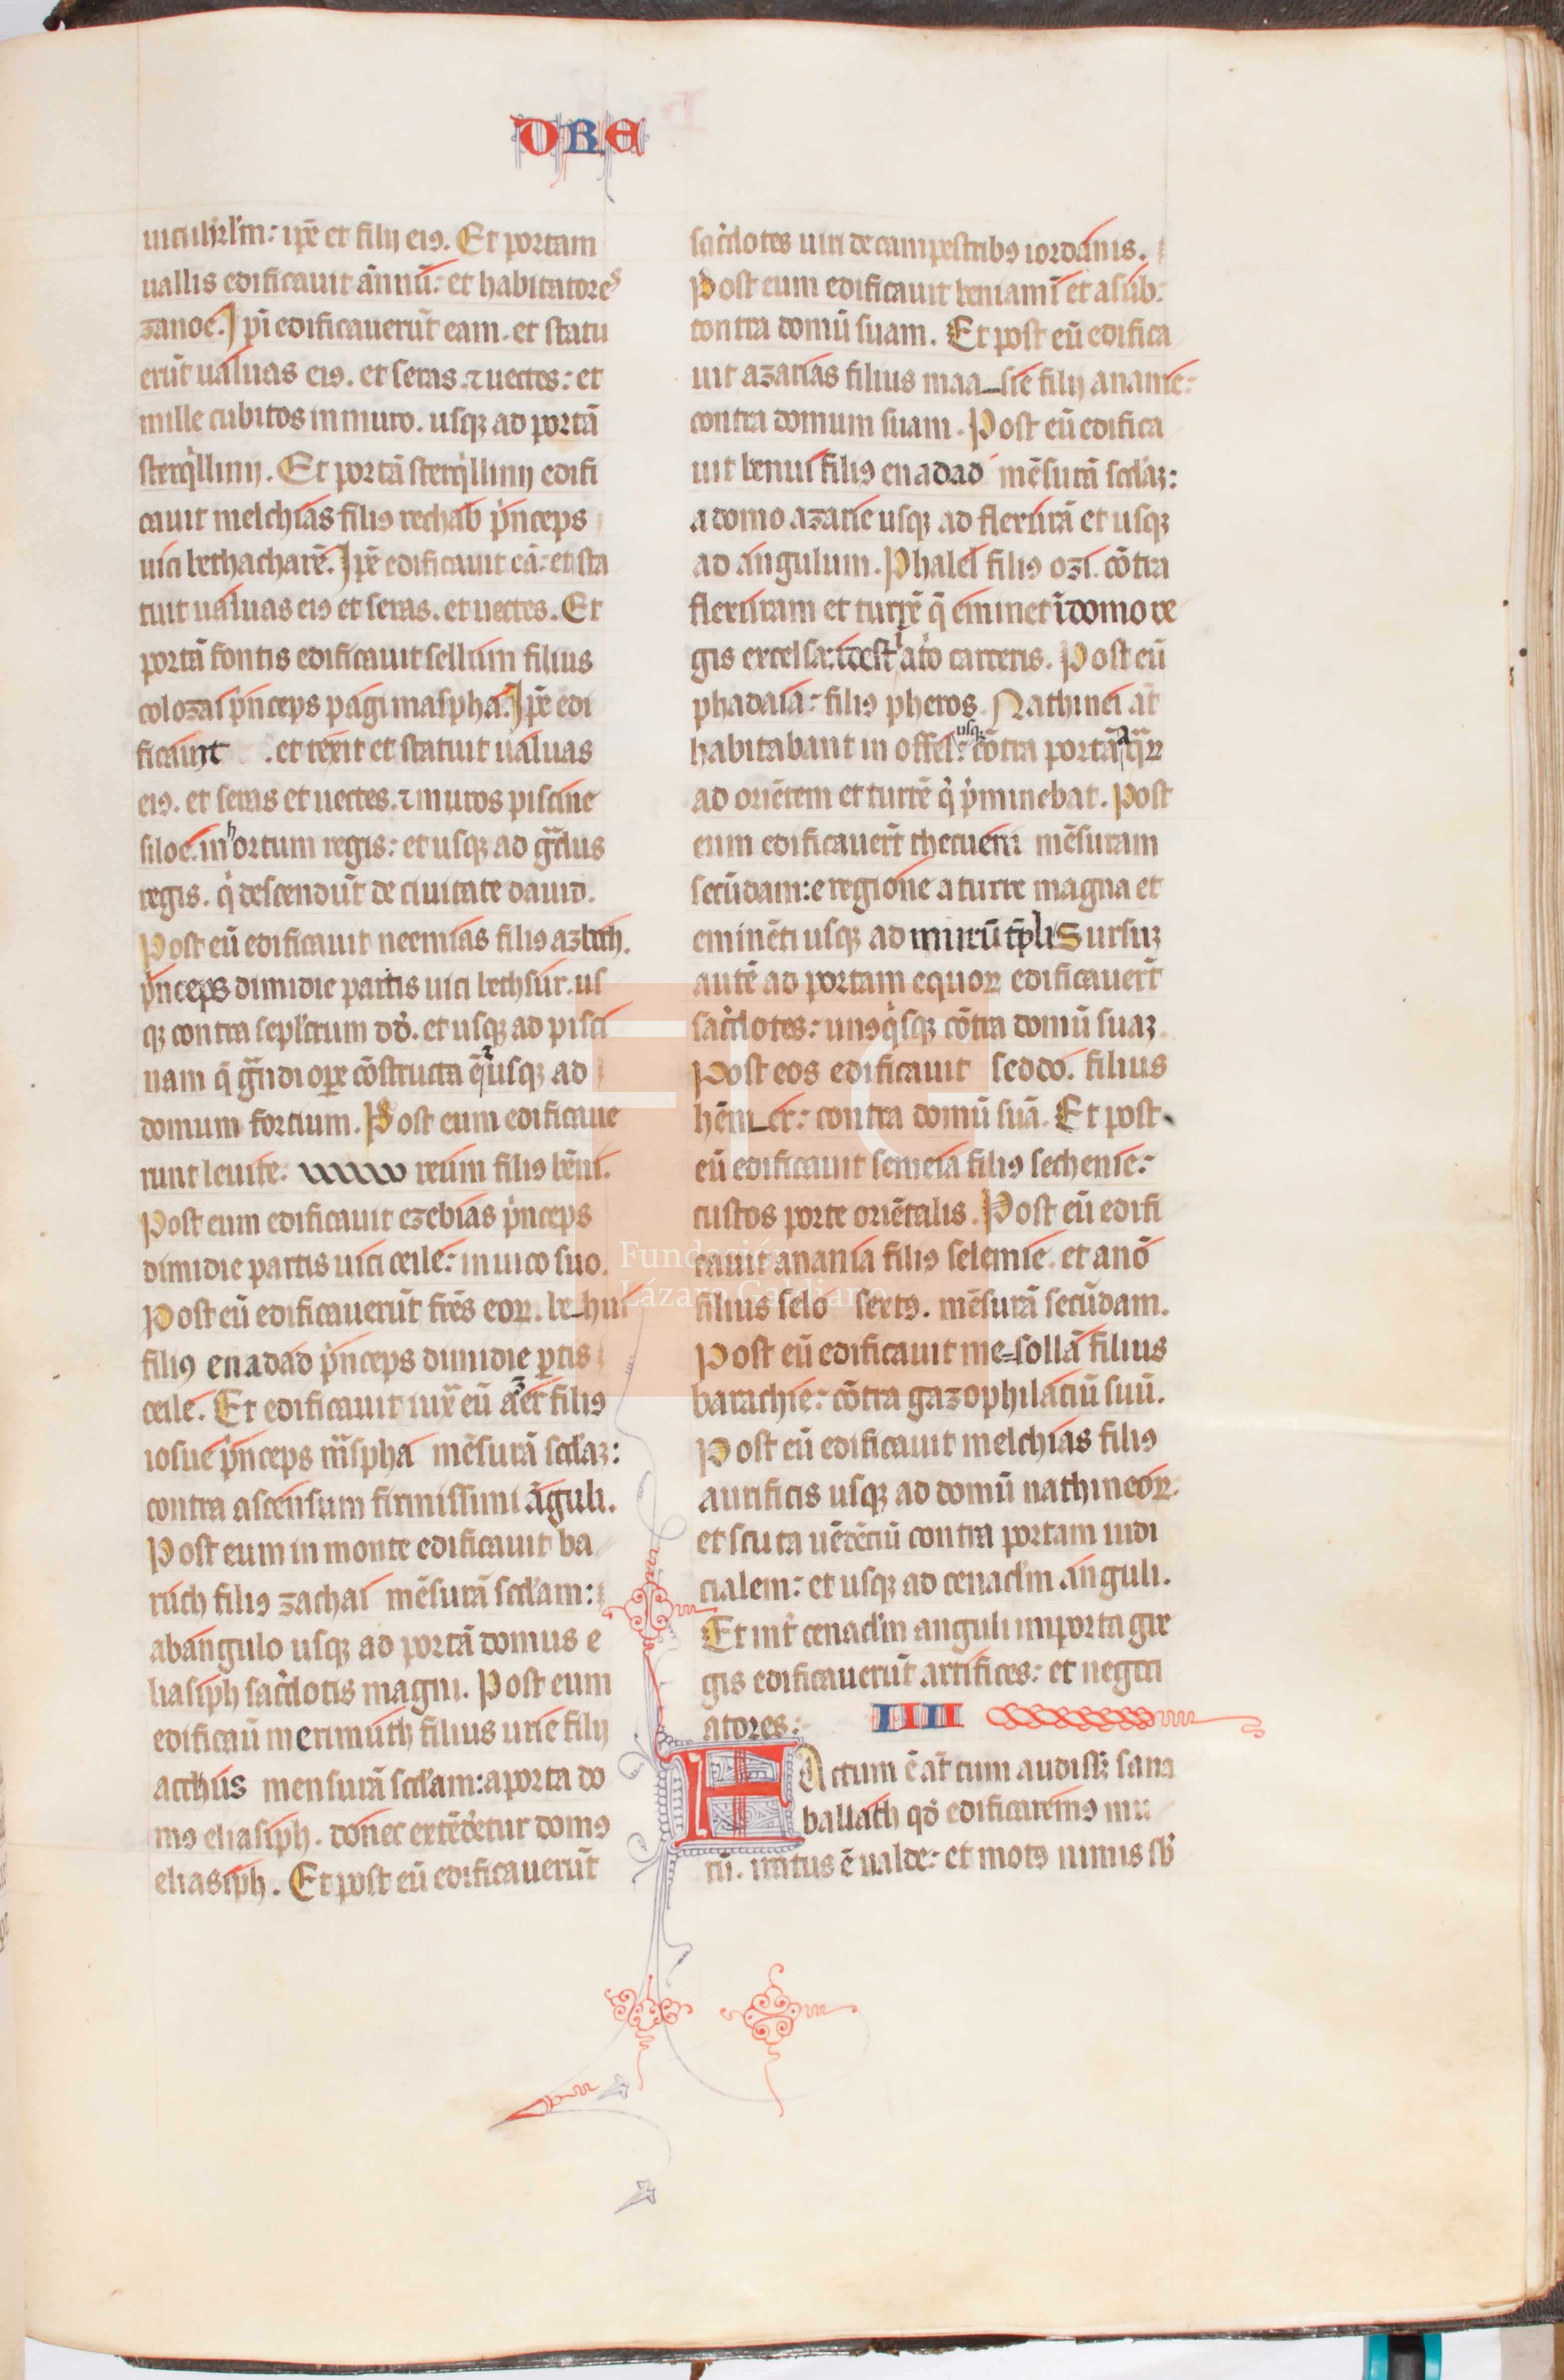 DRE
uici ihrl'm: ip̄e et filij eiꝯ. Et portam
uallis edificauit ānnū: et habitatores
zanoe. Ipi̅ edificauerūt eam. et statu
erūt ualuas eiꝯ. et seras. ⁊ uectes: et
mille cubitos in muro. usqꝫ ad portā
sterq̇llinij. Et portā sterq̇llinij edifi
cauit melchias filiꝯ rechab ṗnceps
uici bethacharē. Ip̄e edificauit eā: et sta
tuit ualuas eiꝯ et seras. et uectes. Et
portā fontis edificauit sellum filius
colozai ṗnceps pagi maspha. Ip̄e edi
ficauit . et texit et statuit ualuas
eiꝯ. et seras et uectes. ⁊ muros piscine
siloe. in hortum regis: et usqꝫ ad gᷓdus
regis. q̇ descendūt de ciuitate dauid.
Post eū edificauit neemias filiꝯ azboch.
ṗnceps dimidie partis uici bethsur. us
qꝫ contra sepl'crum dd̄. et usqꝫ ad pisci
nam q̄ gᷓndi oꝑe cōstructa ē ⁊ usqꝫ ad
domum fortium. Post eum edificaue
runt leuite. reum filiꝯ bēni.
Post eum edificauit ezebias ṗnceps
dimidie partis uici ceile: in uico suo.
Post eū edificauerūt frēs eoꝝ. be-hui
filiꝯ enadad ṗnceps dimidie ꝑtis
ceile. Et edificauit iuxᷓ eū azer filiꝯ
iosue ṗnceps mᷓspha mēsurā scd'aꝫ:
contra ascensum firmissimi āguli.
Post eum in monte edificauit ba
ruch filiꝯ zachai mēsurā scd'am:
ab angulo usqꝫ ad portā domus e
liasiph sac̄dotis magni. Post eum
edificaū merimuth filius urie filij
acchus mensurā scd'am: a porta do
mꝯ eliasiph. donec extēdetur domꝯ
eliasiph. Et post eū edificauerūt
sac̄dotes uiri de campestribꝯ iordanis.
Post eum edificauit beniamī et asub:
contra domū suam. Et post eū edifica
uit azarias filius maa-sie filij ananie:
contra domum suam. Post eū edifica
uit bennui filiꝯ enadad mēsurā scd'aꝫ:
a domo azarie usqꝫ ad flexurā et usqꝫ
ad angulum. Phalel filiꝯ ozi. cōtra
flexuram et turrē q̄ eminet ī domo re
gis excelsa: id est ī atō carceris. Post eū
phadaia: filiꝯ pheros. Nathinei aūt
habitabant in offel: usqꝫ cōtra portā aq̄ꝝ
ad oriētem et turrē q̇ ṗminebat. Post
eum edificauerūt thecueni mēsuram
secūdam: e regione a turre magna et
eminēti usqꝫ ad murū tp̄li Sursuꝫ
autē ad portam equoꝝ edificauerūt
sac̄dotes: unꝯq̇sqꝫ cōtra domū suaꝫ.
Post eos edificauit seddo. filius
hēm-er: contra domū suā. Et post
eū edificauit semeia filiꝯ sechenie:
custos porte oriētalis. Post eū edifi
cauit anania filiꝯ selemie. et anō
filius selo sextꝯ. mēsurā secūdam.
Post eū edificauit me=sollā filius
barachie: cōtra gazophilaciū suū.
Post eū edificauit melchias filiꝯ
aurificis usqꝫ ad domū nathineoꝝ.
et scruta uēdētiū contra portam iudi
cialem: et usqꝫ ad cenacl'm anguli.
Et int̄ cenacl'm anguli in porta gre
gis edificauerūt artifices: et negoti
atores: IIII
Factum ē aūt cum audisꝫ sana
ballath qd̄ edificaremꝯ mu
rū. iratus ē ualde: et motꝯ nimis sb̄
Fundación
Lázaro Galdiano